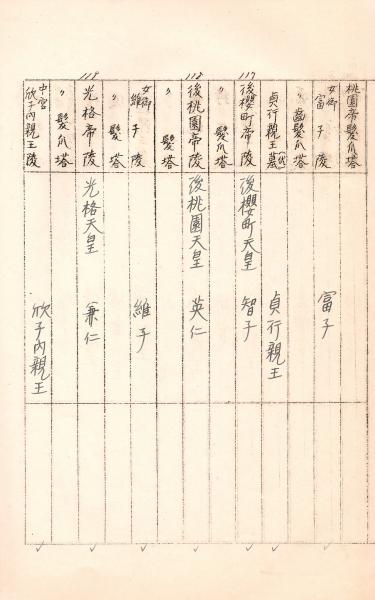 桃園帝髪爪塔
女御 富子陵
富子
〃 歯髪爪塔
貞行親王墓
貞行親王
117
後櫻町帝陵
後櫻町天皇
智子
〃 髪爪塔
118
後桃園帝陵
後桃園天皇
英仁
〃 髪塔
女御 維子陵
維子
〃 髪塔
119
光格帝陵
光格天皇
兼仁
〃 髪爪塔
中宮 欣子内親王陵
欣子内親王